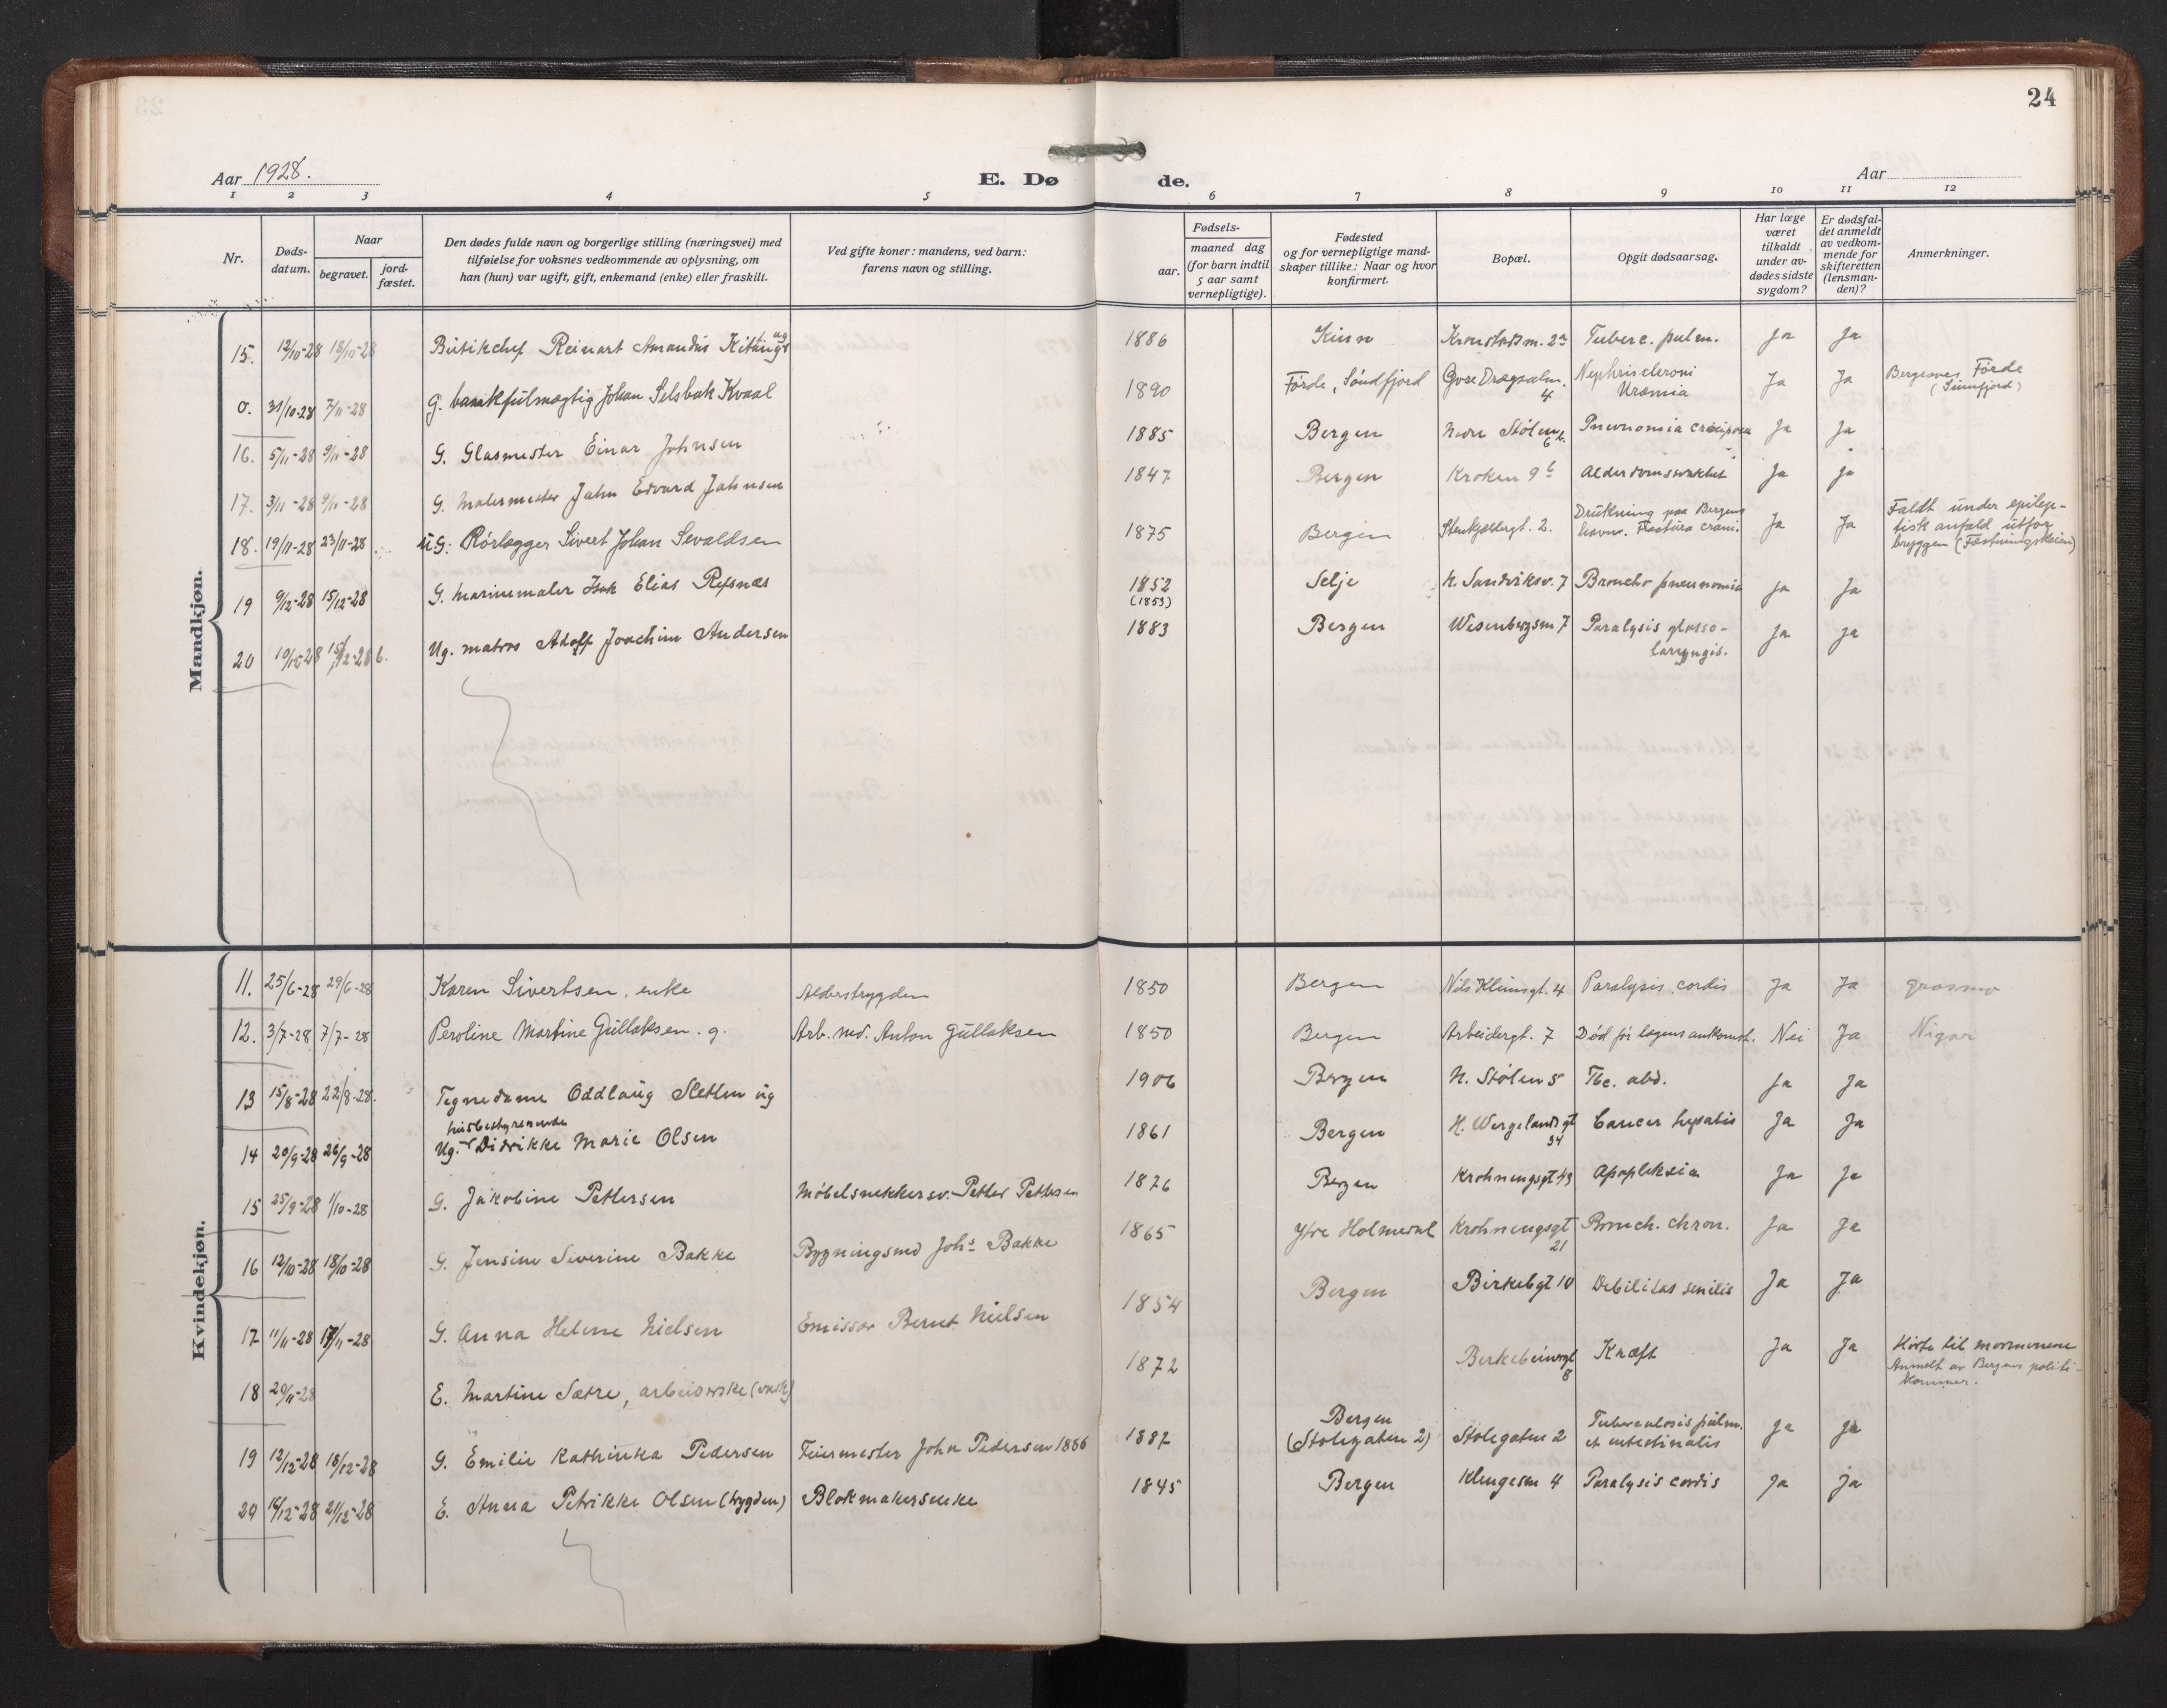 24
Aar 1928.
E. Dø
de.
Aar
1 2 3 4 5 6 7 8 9 10 11 12
Nr.
Døds-
datum.
Naar
begravet.
jord-
fæstet.
Den dødes fulde navn og borgerlige stilling (næringsvei) med
tilføielse for voksnes vedkommende av oplysning, om
han (hun) var ugift, gift, enkemand (enke) eller fraskilt.
Ved gifte koner: mandens, ved barn:
farens navn og stilling.
aar.
Fødsels-
maaned dag
(for barn indtil
5 aar samt
vernepligtige).
Fødested
og for vernepligtige mand-
skaper tillike: Naar og hvor
konfirmert.
Bopæl.
Opgit dødsaarsag.
Har læge
været
tilkaldt
under av-
dødes sidste
sygdom?
Er dødsfal-
det anmeldt
av vedkom-
mende for
skifteretten
(lensman-
den)?
Anmerkninger.
Mandkjøn.
15. 12/10-28 18/10-28 Butikchef Reinart Amandus 1886 Kinn Kronstadsm. 2a Tuberc. pulm. Ja Ja
0. 31/10-28 7/11-28 G. bankfulmægtig Johan Selsbak Kvaal 1890 Førde, Søndfjord 4 Uræmia Ja Ja Førde
(Sunnfjord)
16. 5/11-28 9/11-28 G. Glasmester Einar Johnsen 1885 Bergen Nedre Stølen 6 Pneumonia Ja Ja
17. 3/11-28 9/11-28 G. Malermester Jahn Edvard Jahnsen 1847 Bergen Kroken 9b Alderdomssvakhet Ja Ja
18. 19/11-28 23/11-28 ug. Rørlægger Sivert Johan Sevaldsen 1875 Bergen Stenkjeldergt. 2. Drukning paa Bergens
havn. Fractura crani. Ja Ja Faldt under epilep-
tisk anfald utfor
bryggen (Fæstningskaien)
19 9/12-28 15/12-28 G. Marinemaler Isak Elias Refsnæs 1852
(1853) Selje N. Sandviksv. 7 Broncho pneumonia Ja Ja
20 10/12-28 15/12-28 b. Ug. matros Adolf Joachim Andersen 1883 Bergen Wesenbergsm 7 Paralysis glosso-
laryngis. Ja Ja
Kvindekjøn.
11. 25/6-28 29/6-28 Karen Sivertsen, enke Alderstrygden 1850 Bergen Nils Klimsgt. 4 Paralysis cordis Ja Ja
12. 3/7-28 7/7-28 Peroline Martine Gullaksen. g. Arb.md. Anton Gullaksen 1850 Bergen Arbeidergt. 7 Død før lægens ankomst. Nei Ja
13 15/8-28 22/8-28. Tegnedame Oddlaug Sletten ug 1906 Bergen N. Stølen 5 Tbc. abd. Ja Ja
husbestyrerinde
14 20/9-28 26/9-28 Ug. Didrikke Marie Olsen 1861 Bergen H. Wergelandsgt
34 Cancer hepatis Ja Ja
15 25/9-28 1/10-28 G. Jakobine Pettersen Møbelsnekkersv. Petter Pettersen 1876 Bergen Krohnengsgt 49 Apopleksia Ja Ja
16 12/10-28 18/10-28 G. Jensine Severine Bakke Bygningssnd Johs Bakke 1865 Ytre Holmedal Krohnengsgt
21 Bronch. chron. Ja Ja
17 11/11-28 17/11-28 G. Anna Helene Nielsen Emissær Bernt Nielsen 1854 Bergen Birkebgt 10 Debilitas senilis Ja Ja
18 20/11-28 E. Martine Sætre, arbeiderske (vask) 1872 Birkebeinergt
8 Kræft Ja Ja Hørte til mormonene
Anmeldt av Bergens politi-
kammer.
19 12/12-28 18/12-28 G. Emilie Kathinka Pedersen Feiermester John Pedersen 1886 1887 Bergen
(Stølegaten 2) Stølegaten 2 Tuberculosis pulm.
et intestinalis Ja Ja
20 16/12-28 21/12-28 E. Anna Petrikke Olsen (trygden) Blokmakerenke 1845 Bergen Klingesm 4 Paralysis cordis Ja Ja